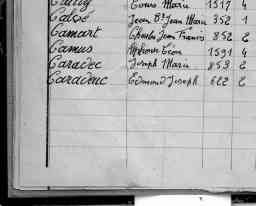 Louis Marie 1517 4
Calvé Jean Bte Jean Marie 352 1
Camart Charles Jean Francis 852 2
Camus Alphonse Léon 1591 4
Caradec Joseph Marie 859 2
Caradeuc Edmond Joseph 622 2